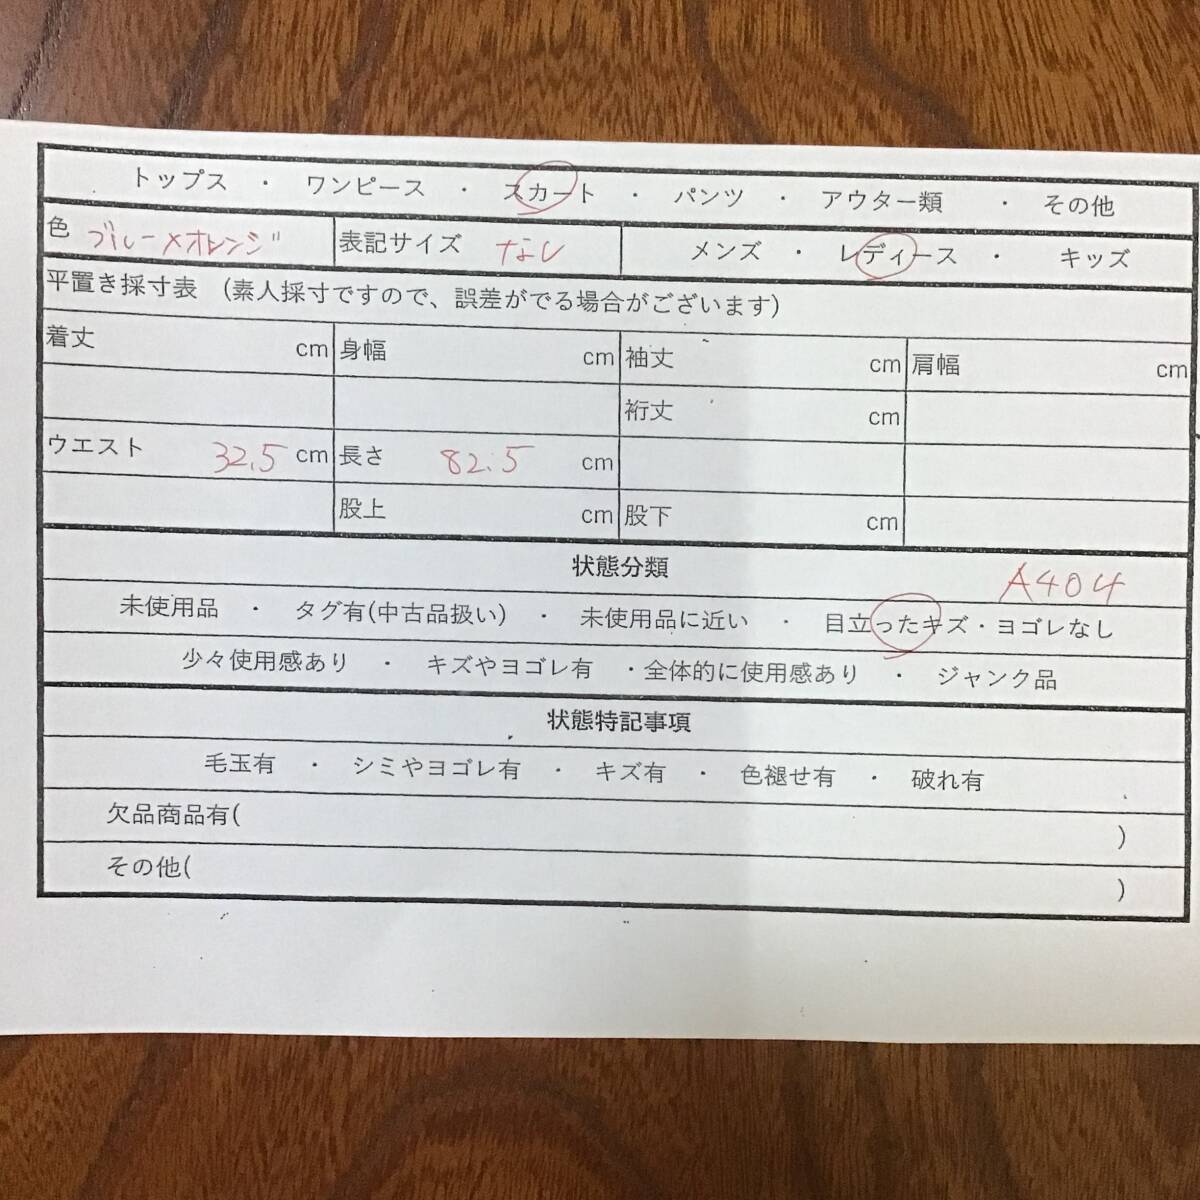 トップス ・ ワンピース ・ スカート ・ パンツ ・ アウター類 ・ その他
色 ブルー×オレンジ 表記サイズ なし メンズ ・ レディース ・ キッズ
平置き採寸表 (素人採寸ですので、誤差がでる場合がございます)
着丈 cm 身幅 cm 袖丈 cm 肩幅 cm
裄丈 cm
ウエスト 32.5 cm 長さ 82.5 cm
股上 cm 股下 cm
状態分類 A404
未使用品 ・ タグ有(中古品扱い) ・ 未使用品に近い ・ 目立ったキズ・ヨゴレなし
少々使用感あり ・ キズやヨゴレ有 ・全体的に使用感あり ・ ジャンク品
状態特記事項
毛玉有 ・ シミやヨゴレ有 ・ キズ有 ・ 色褪せ有 ・ 破れ有
欠品商品有( )
その他( )